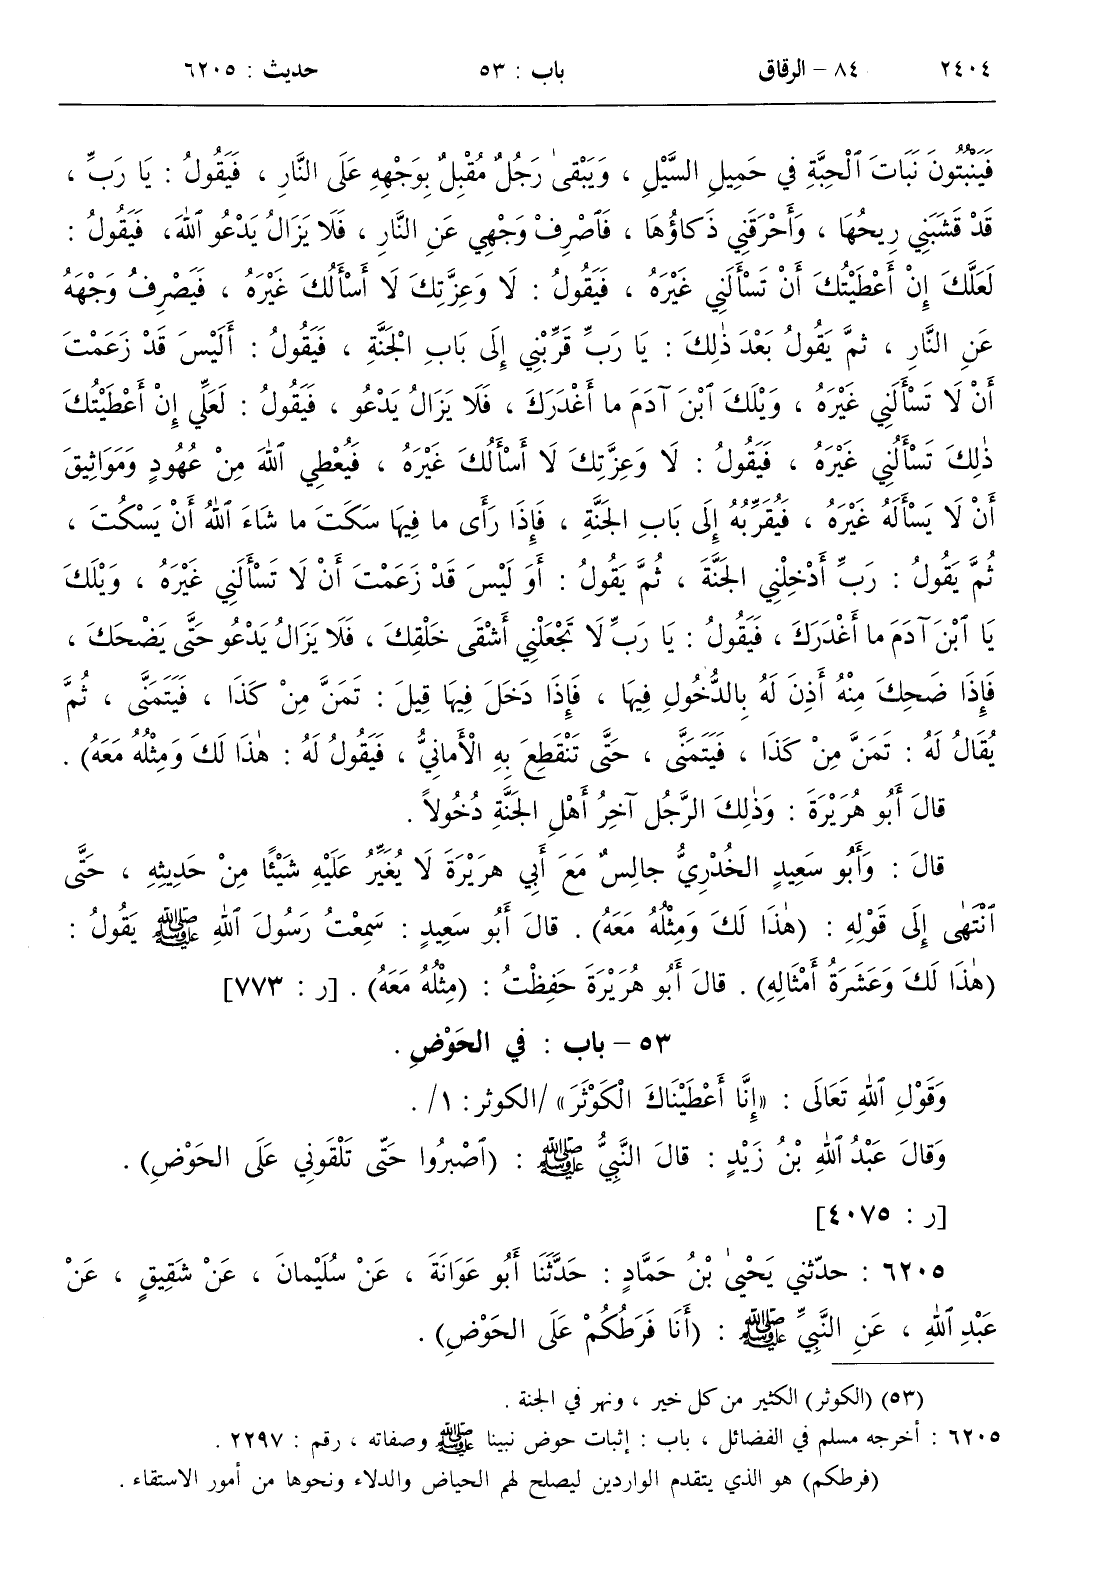 ٢٤٠٤ ٨٤ – الرقاق باب : ٥٣ حديث : ٦٢٠٥
فَيَنْبُتُونَ نَبَاتَ ٱلْحِبَّةِ في حَمِيلِ السَّيْلِ ، وَيَبْقىٰ رَجُلٌ مُقْبِلٌ بِوَجْهِهِ عَلَى النَّارِ ، فَيَقُولُ : يَا رَبِّ ،
قَدْ قَشَبَنِي رِيحُهَا ، وَأَحْرَقَنِي ذَكاؤُهَا ، فَٱصْرِفْ وَجْهِي عَنِ النَّارِ ، فَلَا يَزَالُ يَدْعُو ٱللهَ، فَيَقُولُ :
لَعَلَّكَ إِنْ أَعْطَيْتُكَ أَنْ تَسْأَلَنِي غَيْرَهُ ، فَيَقُولُ : لَا وَعِزَّتِكَ لَا أَسْأَلُكَ غَيْرَهُ ، فَيَصْرِفُ وَجْهَهُ
عَنِ النَّارِ ، ثمَّ يَقُولُ بَعْدَ ذٰلِكَ : يَا رَبِّ قَرِّبْنِي إِلَى بَابِ الْجَنَّةِ ، فَيَقُولُ : أَلَيْسَ قَدْ زَعَمْتَ
أَنْ لَا تَسْأَلَنِي غَيْرَهُ ، وَيْلَكَ ٱبْنَ آدَمَ ما أَغْدَرَكَ ، فَلَا يَزَالُ يَدْعُو ، فَيَقُولُ : لَعَلِّي إِنْ أَعْطَيْتُكَ
ذٰلِكَ تَسْأَلُنِي غَيْرَهُ ، فَيَقُولُ : لَا وَعِزَّتِكَ لَا أَسْأَلُكَ غَيْرَهُ ، فَيُعْطِي ٱللهَ مِنْ عُهُودٍ وَمَوَاثِيقَ
أَنْ لَا يَسْأَلَهُ غَيْرَهُ ، فَيُقَرِّبُهُ إِلَى بَابِ الجَنَّةِ ، فَإِذَا رَأَى ما فِيهَا سَكَتَ ما شَاءَ ٱللهُ أَنْ يَسْكُتَ ،
ثُمَّ يَقُولُ : رَبِّ أَدْخِلْنِي الجَنَّةَ ، ثُمَّ يَقُولُ : أَوَ لَيْسَ قَدْ زَعَمْتَ أَنْ لَا تَسْأَلَنِي غَيْرَهُ ، وَيْلَكَ
يَا ٱبْنَ آدَمَ ما أَغْدَرَكَ ، فَيَقُولُ : يَا رَبِّ لَا تَجْعَلْنِي أَشْقَى خَلْقِكَ ، فَلَا يَزَالُ يَدْعُو حَتَّى يَضْحَكَ ،
فَإِذَا ضَحِكَ مِنْهُ أَذِنَ لَهُ بِالدُّخُولِ فِيهَا ، فَإِذَا دَخَلَ فِيهَا قِيلَ : تَمَنَّ مِنْ كَذَا ، فَيَتَمَنَّى ، ثُمَّ
يُقَالُ لَهُ : تَمَنَّ مِنْ كَذَا ، فَيَتَمَنَّى ، حَتَّى تَنْقَطِعَ بِهِ الْأَمانِيُّ ، فَيَقُولُ لَهُ : هٰذَا لَكَ وَمِثْلُهُ مَعَهُ) .
قالَ أَبُو هُرَيْرَةَ : وَذٰلِكَ الرَّجُلُ آخِرُ أَهْلِ الجَنَّةِ دُخُولاً .
قالَ : وَأَبُو سَعِيدٍ الخُدْرِيُّ جالِسٌ مَعَ أَبِي هرَيْرَةَ لَا يُغَيِّرُ عَلَيْهِ شَيْئًا مِنْ حَدِيثِهِ ، حَتَّى
ٱنْتَهٰى إِلَى قَوْلِهِ : (هٰذَا لَكَ وَمِثْلُهُ مَعَهُ) . قالَ أَبُو سَعِيدٍ : سَمِعْتُ رَسُولَ ٱللهِ ﷺ يَقُولُ :
(هٰذَا لَكَ وَعَشَرَةُ أَمْثَالِهِ) . قالَ أَبُو هُرَيْرَةَ حَفِظْتُ : (مِثْلُهُ مَعَهُ) . [ر : ٧٧٣]
٥٣ – باب : في الحَوْضِ .
وَقَوْلِ ٱللهِ تَعَالَى : «إِنَّا أَعْطَيْنَاكَ الْكَوْثَرَ» /الكوثر: ١/ .
وَقالَ عَبْدُ ٱللهِ بْنُ زَيْدٍ : قالَ النَّبِيُّ ﷺ : (ٱصْبِرُوا حَتّى تَلْقَوْنِي عَلَى الحَوْضِ) .
[ر : ٤٠٧٥]
٦٢٠٥ : حدّثني يَحْيىٰ بْنُ حَمَّادٍ : حَدَّثَنَا أَبُو عَوَانَةَ ، عَنْ سُلَيْمانَ ، عَنْ شَقِيقٍ ، عَنْ
عَبْدِ ٱللهِ ، عَنِ النَّبِيِّ ﷺ : (أَنَا فَرَطُكُمْ عَلَى الحَوْضِ) .
(٥٣) (الكوثر) الكثير من كل خير ، ونهر في الجنة .
٦٢٠٥ : أخرجه مسلم في الفضائل ، باب : إثبات حوض نبينا ﷺ وصفاته ، رقم : ٢٢٩٧ .
(فرطكم) هو الذي يتقدم الواردين ليصلح لهم الحياض والدلاء ونحوها من أمور الاستقاء .